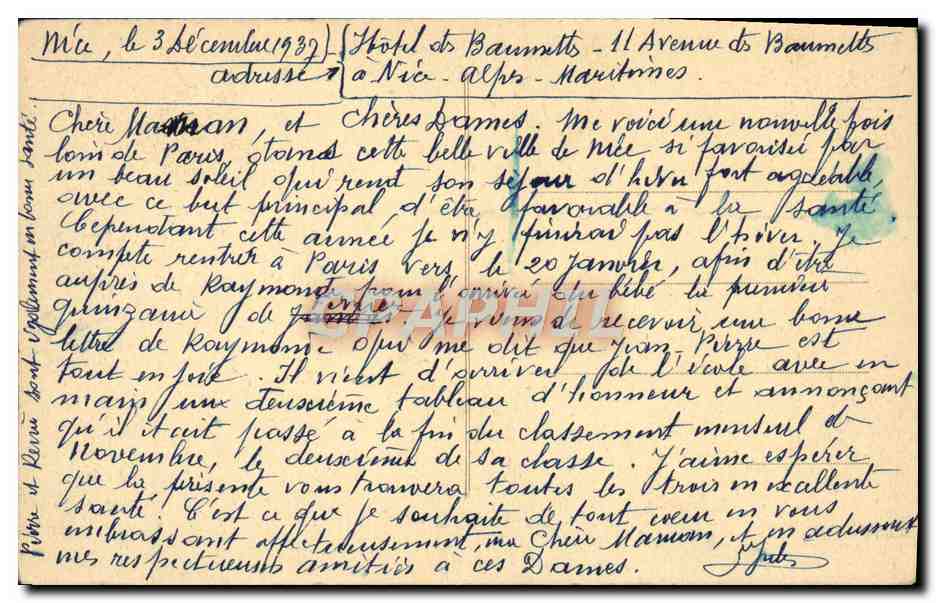 Nice, le 3 Décembre 1937
adresse
Hôtel ds Baumetts - 11 Avenue ds Baumetts
à Nice - Alps - Maritimes.
Chère Maman, et Chères Dames. Me voici une nouvelle fois
loin de Paris, dans cette belle ville de Nice si favorisée par
un beau soleil qui rend son séjour d'hiver fort agréable
avec ce but principal, d'être favorable à la santé.
Cependant cette année je n'y finirai pas l'hiver. Je
compte rentrer à Paris vers le 20 Janvier, afin d'être
auprès de Raymonde pour l'arrivée du bébé la première
quinzaine de février. Je viens de recevoir une bonne
lettre de Raymonde qui me dit que Jean-Pierre est
tout en joie. Il vient d'arriver de l'école avec en
main un deuxième tableau d'honneur et annonçant
qu'il était passé à la fin du classement mensuel de
Novembre, le deuxième de sa classe. J'aime espérer
que la présente vous trouvera toutes les trois en excellente
santé. C'est ce que je souhaite de tout coeur en vous
embrassant affectueusement, ma Chère Maman, et en adressant
mes respectueuses amitiés à ces Dames.
Jules
Pierre et Renée sont également en bonne santé.
DELCAMPE